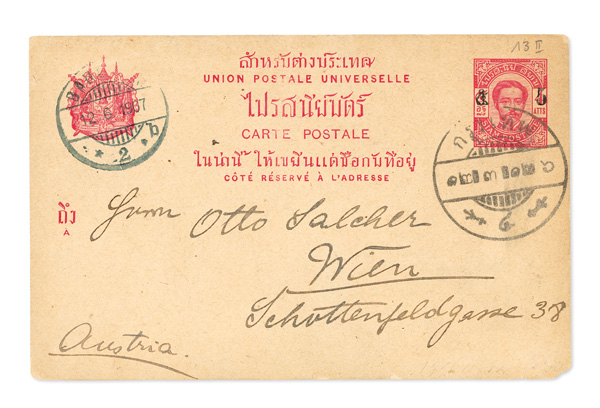 13 II
สำหรับต่างประเทศ
UNION POSTALE UNIVERSELLE
ไปรสนียบัตร์
CARTE POSTALE
ในน่านี้ ให้เขียนแต่ชื่อกับที่อยู่
CÔTÉ RÉSERVÉ À L'ADRESSE
12 6 1907
2
ATTS
๕ 5
ถึง
A
Herrn Otto Salcher
Wien
Schottenfeldgasse 38
Austria.